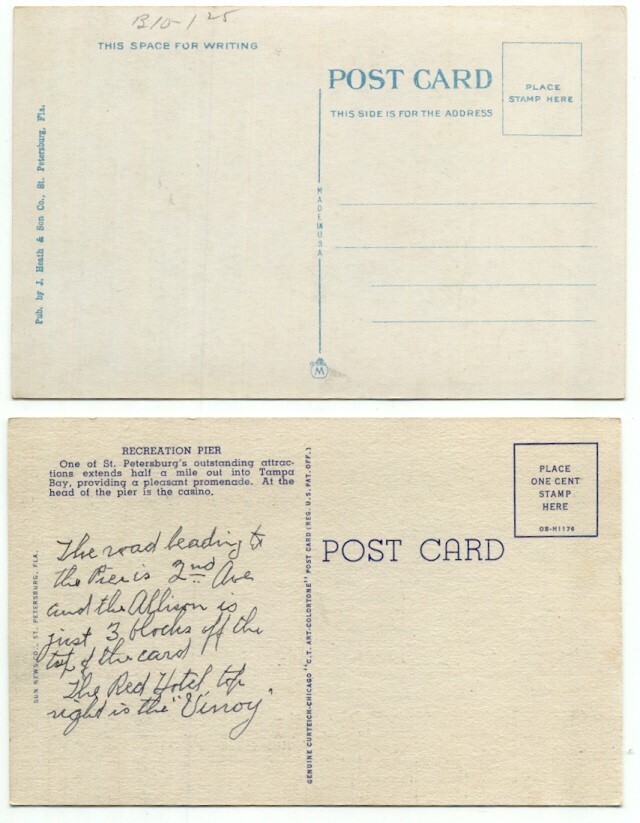 B10-1 25
THIS SPACE FOR WRITING
POST CARD
THIS SIDE IS FOR THE ADDRESS
PLACE
STAMP HERE
Pub. by J. Heath & Son Co., St. Petersburg, Fla.
MADE IN USA
M
RECREATION PIER
One of St. Petersburg's outstanding attrac-
tions extends half a mile out into Tampa
Bay, providing a pleasant promenade. At the
head of the pier is the casino.
The road leading to
the Pier is 2nd Ave
and the Allison is
just 3 blocks off the
top of the card
The Red Hotel top
right is the "Vinoy"
SUN NEWS CO., ST. PETERSBURG, FLA.
GENUINE CURTEICH-CHICAGO "C.T. ART-COLORTONE" POST CARD (REG. U.S. PAT. OFF.)
POST CARD
PLACE
ONE CENT
STAMP
HERE
OB-H1176